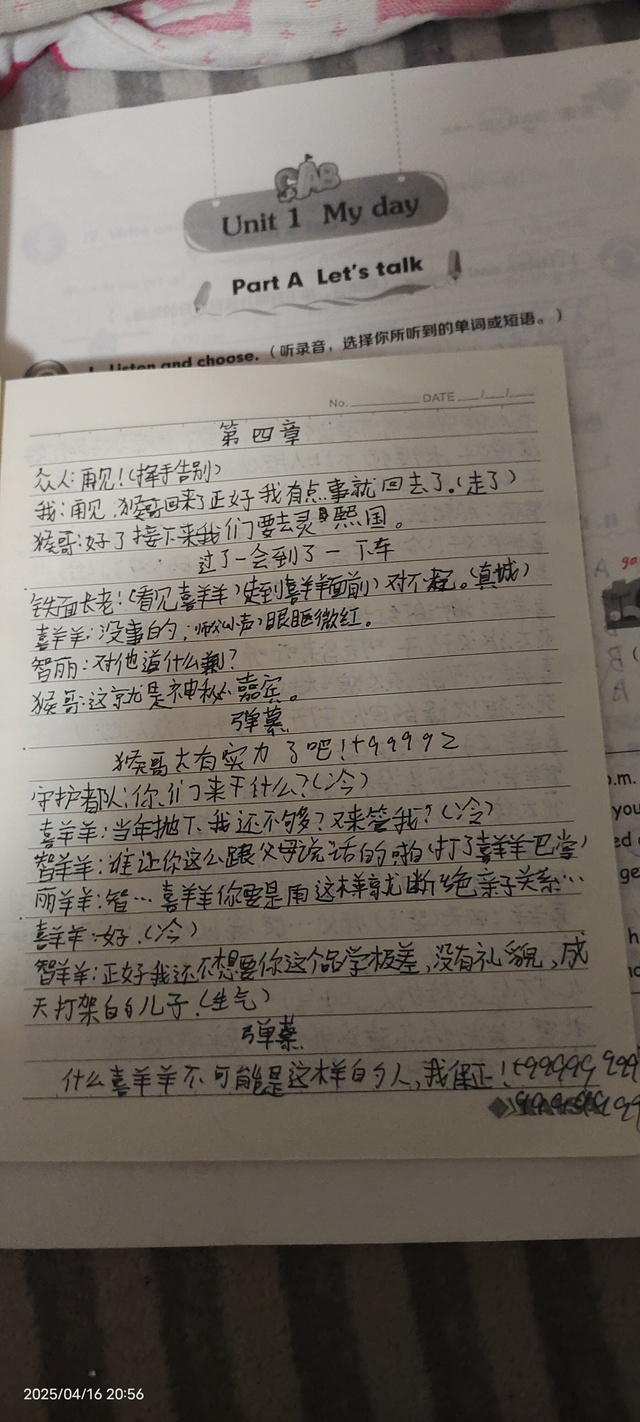 Unit 1 My day
Part A Let's talk
1. Listen and choose.（听录音，选择你所听到的单词或短语。）
No. DATE / /
第四章
众人:再见!(挥手告别)
我:再见,猴哥回来了正好我有点事就回去了。(走了)
猴哥:好了接下来我们要去灵熙国。
过了一会到了一下车
铁面长老:(看见喜羊羊)走到喜羊羊面前)对不起。(真城)
喜羊羊:没事的,师父(小声)眼眶微红。
智丽:对他道什么歉?
猴哥:这就是神秘嘉宾。
弹幕
猴哥太有实力了吧!+99992
守护者队:你们来干什么?(冷)
喜羊羊:当年抛下我还不够?又来管我?(冷)
智羊羊:谁让你这么跟父母说话的啪(打了喜羊羊巴掌)
丽羊羊:智…喜羊羊你要是用这样就断绝亲子关系…
喜羊羊:好.(冷)
智羊羊:正好我还不想要你这个品学极差,没有礼貌,成
天打架的儿子.(生气)
弹幕
什么喜羊羊不可能是这样的人,我保正!+99999999
p.m.
you
ed
ge
2025/04/16 20:56